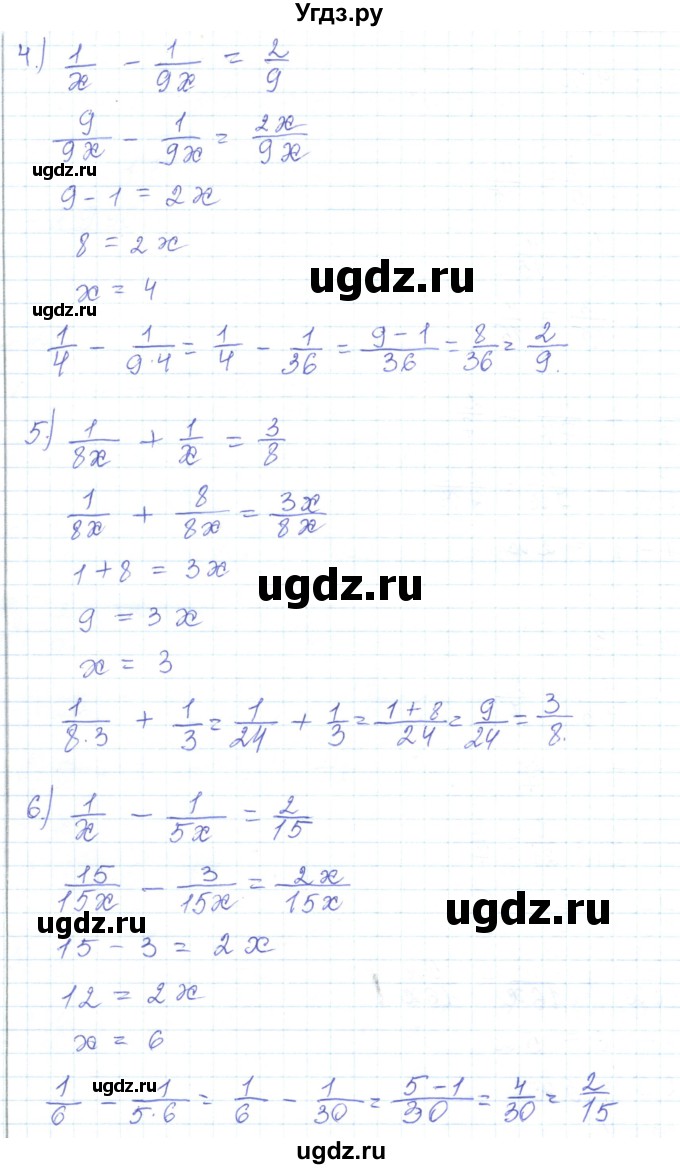 Угдз.ру
4.) 1/x - 1/9x = 2/9
9/9x - 1/9x = 2x/9x
ugdz.ru
9 - 1 = 2x
8 = 2x
ugdz.ru
x = 4
ugdz.ru
1/4 - 1/9·4 = 1/4 - 1/36 = 9-1/36 = 8/36 = 2/9.
5.) 1/8x + 1/x = 3/8
1/8x + 8/8x = 3x/8x
1 + 8 = 3x
ugdz.ru
9 = 3x
x = 3
1/8·3 + 1/3 = 1/24 + 1/3 = 1+8/24 = 9/24 = 3/8.
6.) 1/x - 1/5x = 2/15
15/15x - 3/15x = 2x/15x
ugdz.ru
ugdz.ru
15 - 3 = 2x
12 = 2x
x = 6
ugdz.ru
1/6 - 1/5·6 = 1/6 - 1/30 = 5-1/30 = 4/30 = 2/15
ugdz.ru